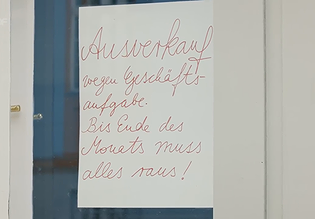 Ausverkauf
wegen Geschäfts-
aufgabe.
Bis Ende des
Monats muss
alles raus!